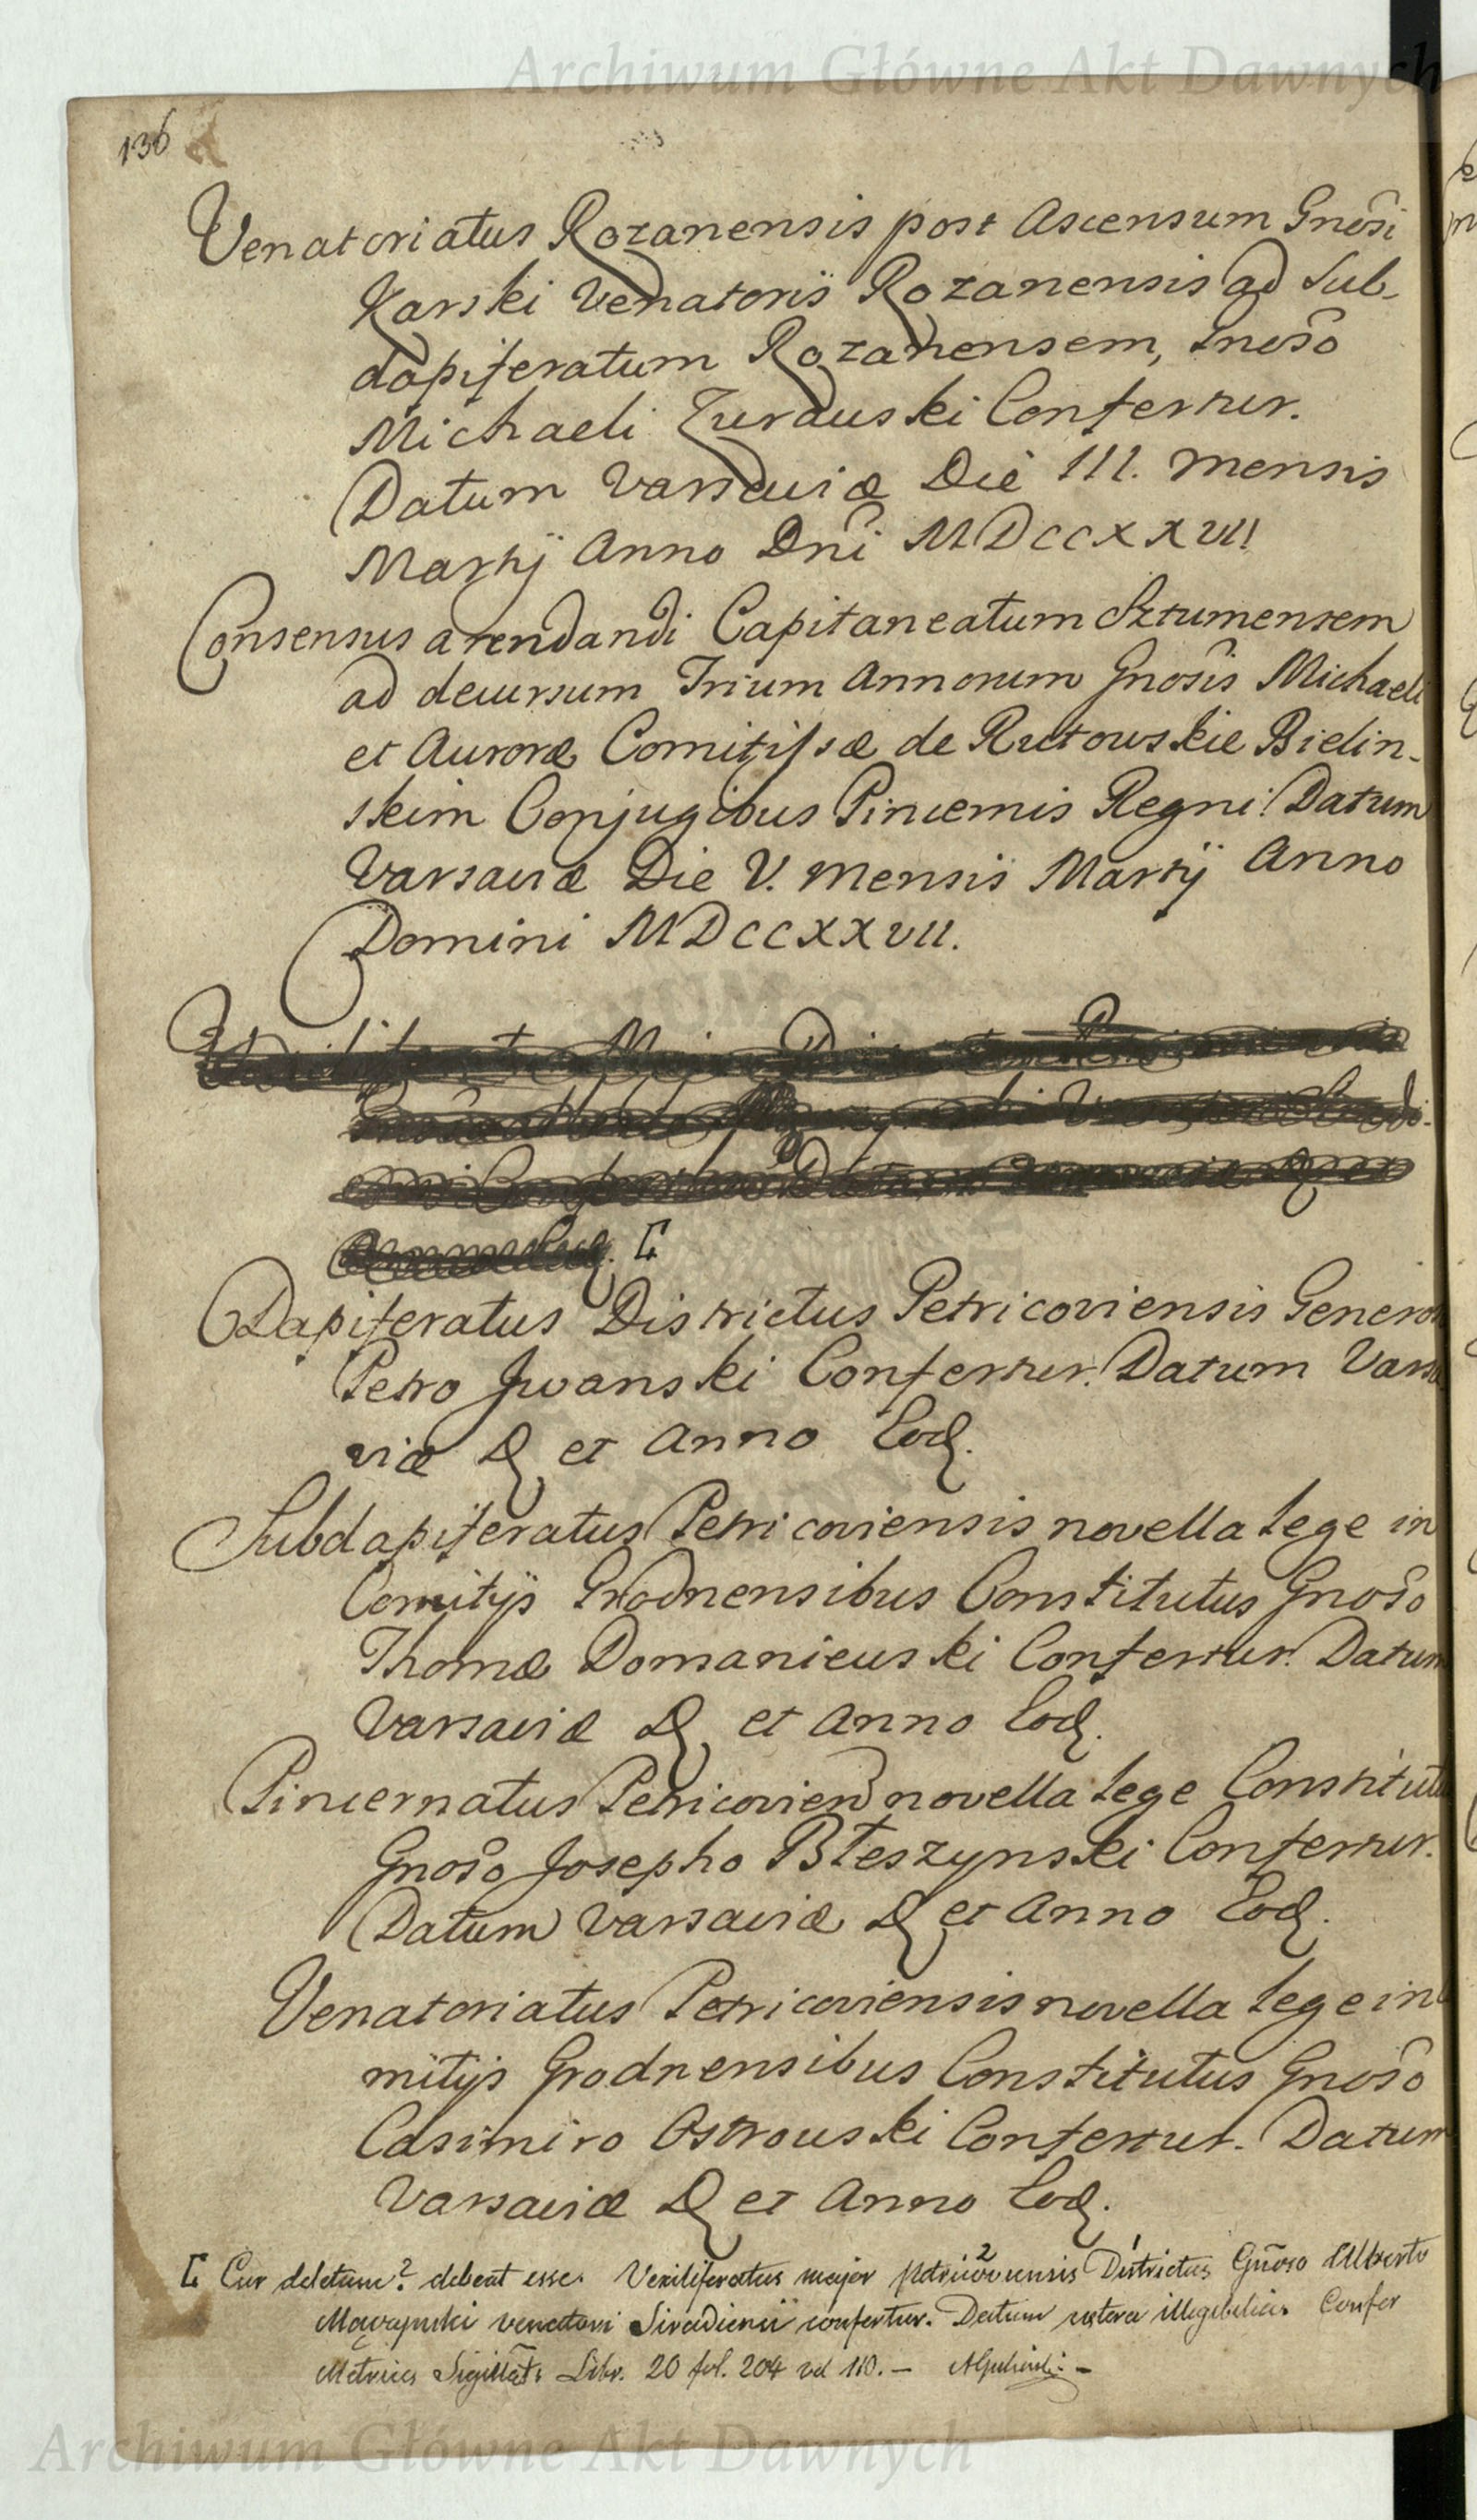 Archiwum Główne Akt Dawnych
136
Venatoriatus Rozanensis post Ascensum Gnosi
Karski Venatoris Rozanensis ad Sub-
dapiferatum Rozanensem, Gnoso
Michaeli Zurauski Confertur.
Datum Varsaviæ Die III. mensis
Martij Anno Dni MDCCXXVII
Consensus arendandi Capitaneatum Sztumensem
ad decursum Trium Annorum Gnosis Michaeli
et Auroræ Comitissæ de Rutowskie Bielin-
skim Conjugibus Pincernis Regni. Datum
Varsaviæ Die V. mensis Martij Anno
Domini MDCCXXVII.
Dapiferatus Districtus Petricoviensis Generoso
Petro Jwanski Confertur. Datum Varsa
viæ D et Anno Eod.
Subdapiferatus Petricoviensis novella lege in
Comitijs Grodnensibus Constitutus Gnoso
Thomæ Domanieuski Confertur. Datum
Varsaviæ D et Anno Eod.
Pincernatus Petricovien novella lege Constitutus
Gnoso Josepho Błeszynski Confertur.
Datum Varsaviæ D et Anno Eod.
Venatoriatus Petricoviensis novella lege in
mitijs Grodnensibus Constitutus Gnoso
Casimiro Ostrouski Confertur. Datum
Varsaviæ D et Anno Eod.
Cur deletum? debeat esse. Vexiliferatus major Petricoviensis 2 Districtus 1 Gnoso Alberto
venatori Siradiensi confertur. Datum cætera illegibilia. Confer
Metrices Sigillat: Libr. 20 fol. 204 vel 110. —
Archiwum Główne Akt Dawnych